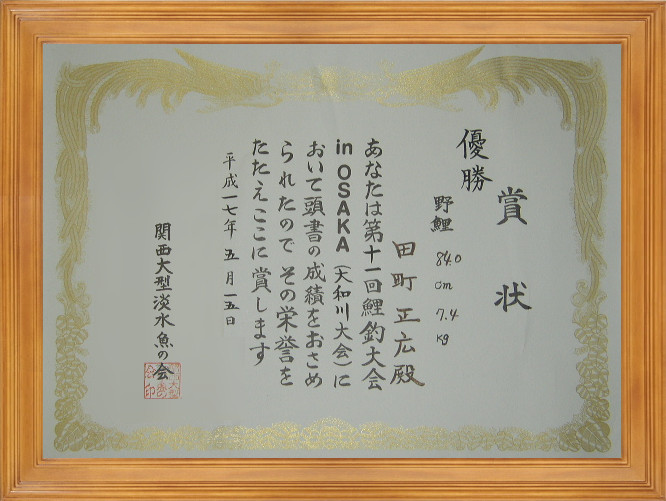 賞状
優勝
野鯉 84.0cm 7.4kg
田町正広殿
あなたは第十一回鯉釣大会
in OSAKA(大和川大会)に
おいて頭書の成績をおさめ
られたのでその栄誉を
たたえここに賞します
平成一七年五月一五日
関西大型淡水魚の会